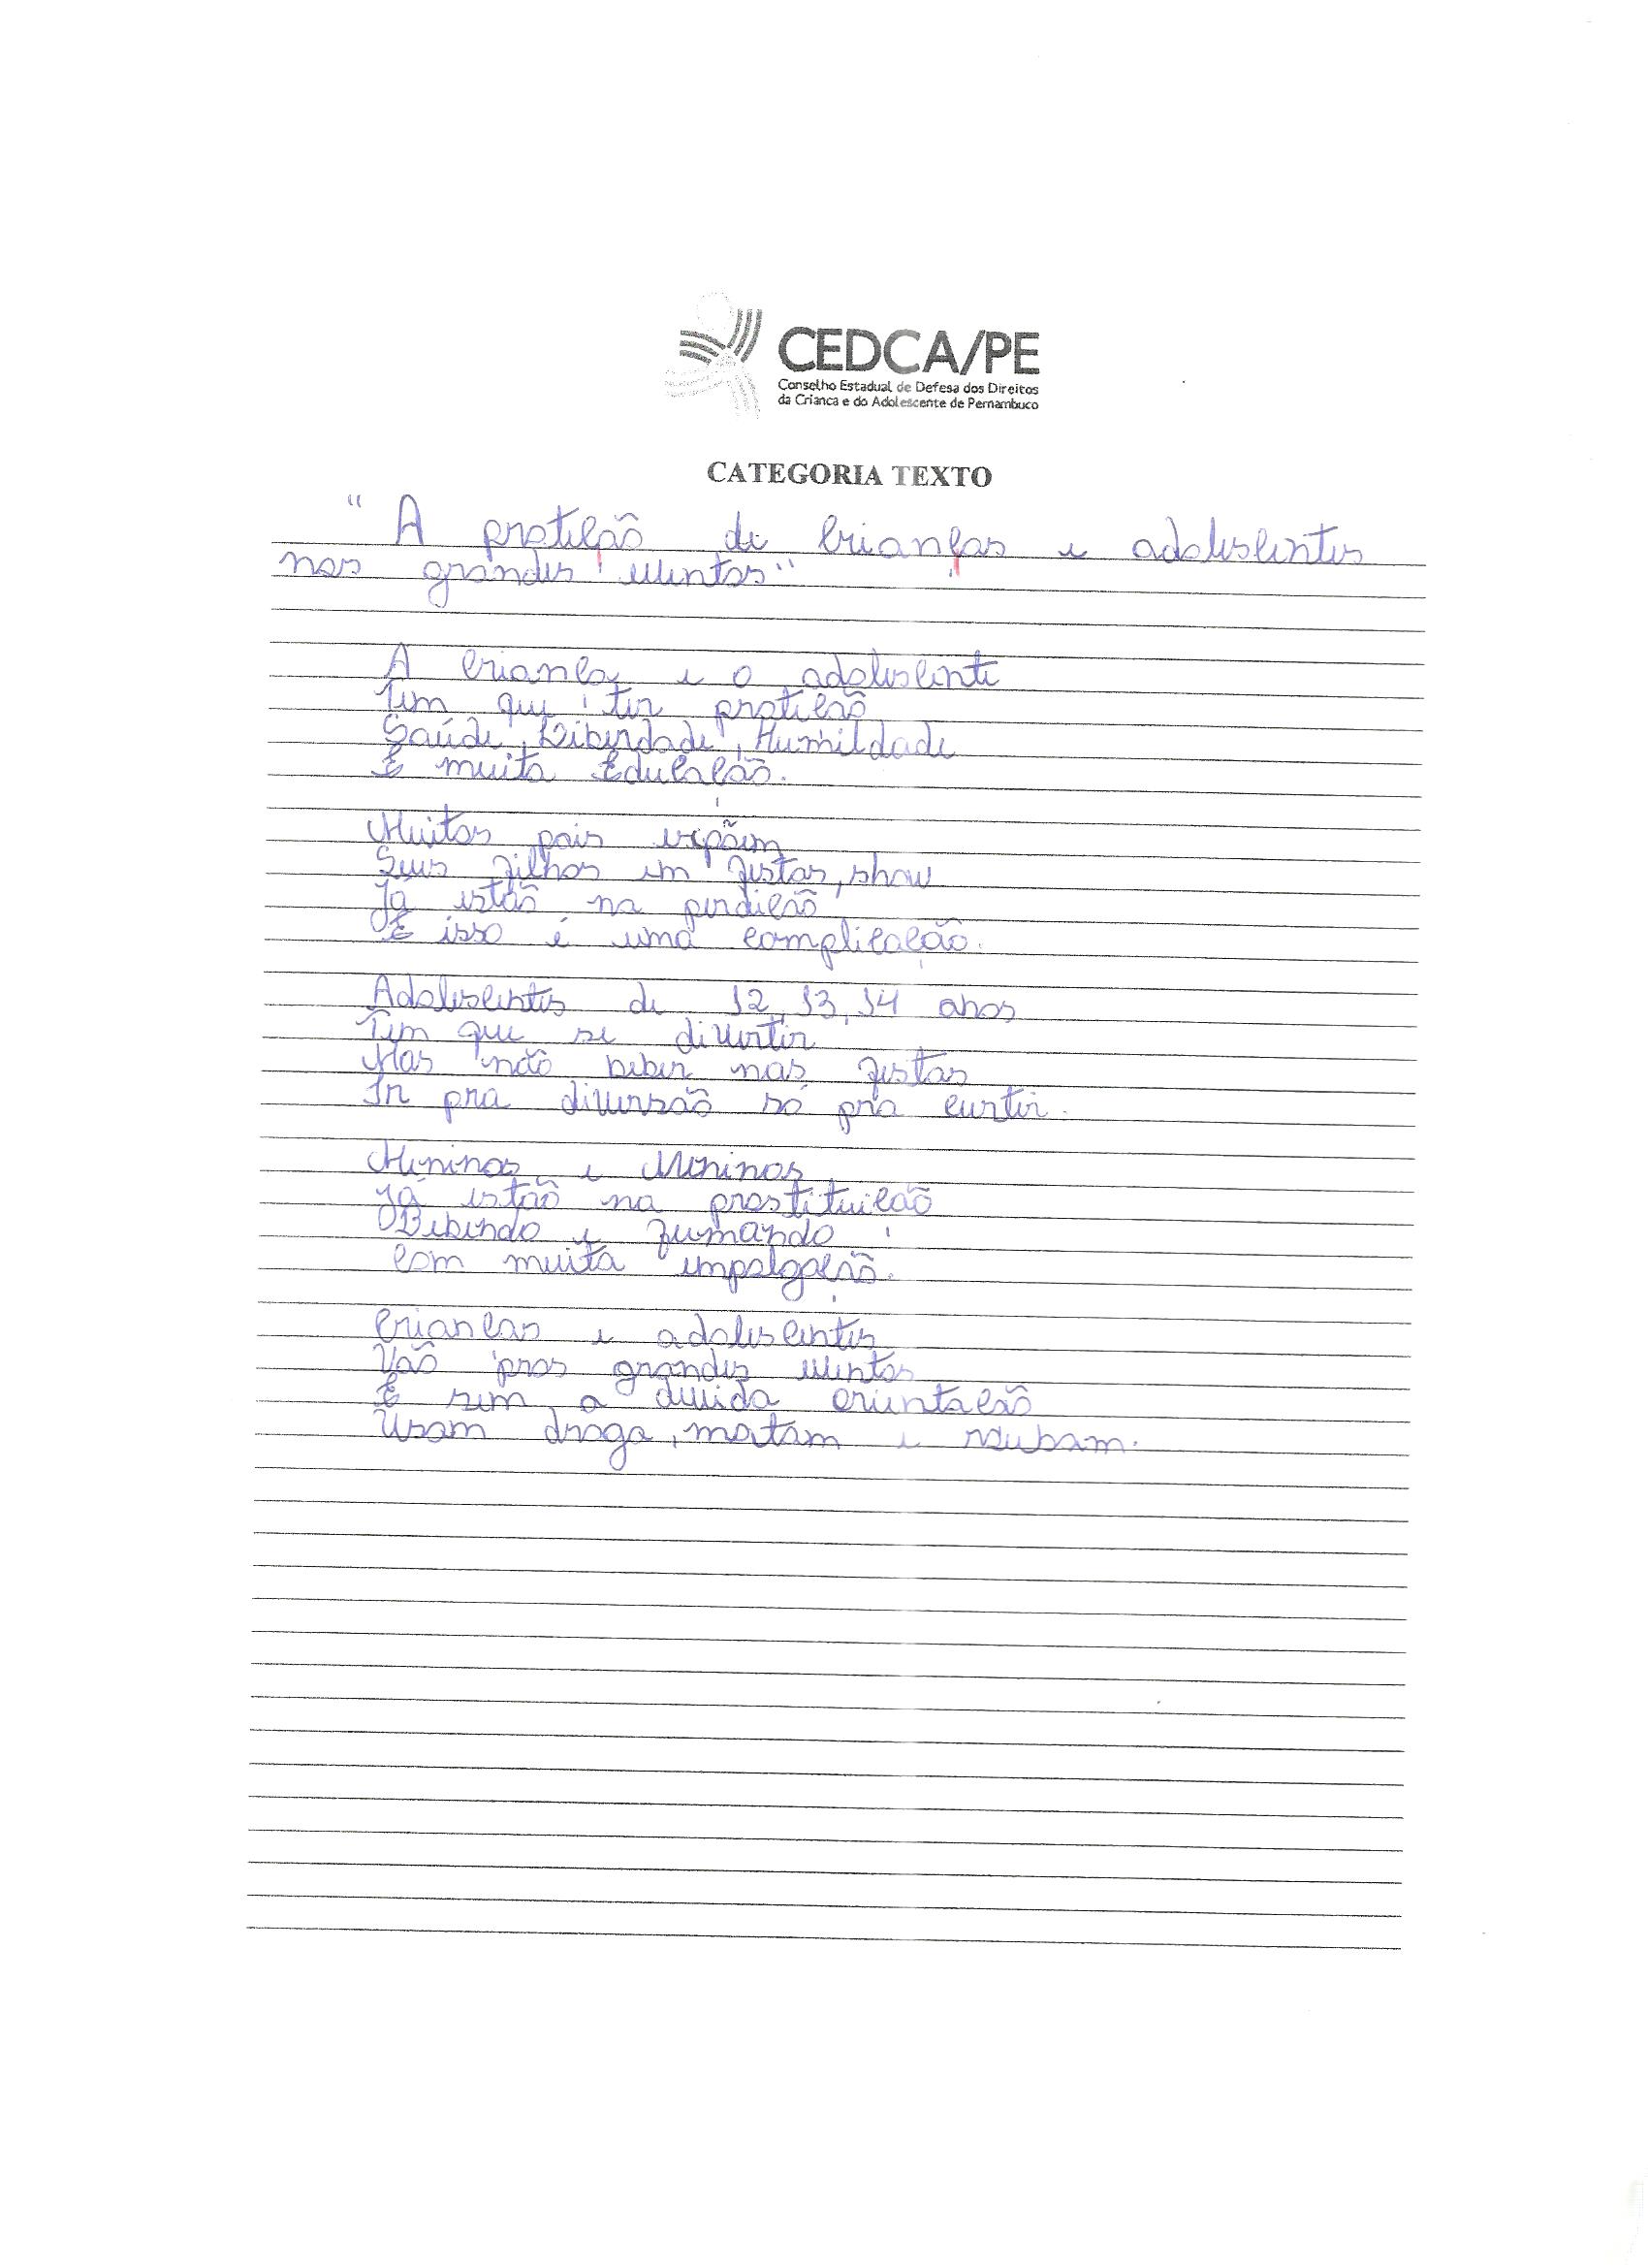 CEDCA/PE
Conselho Estadual de Defesa dos Direitos
da Crianca e do Adolescente de Pernambuco
CATEGORIA TEXTO
"A proteção de crianças e adolescentes
nos grandes eventos"
A criança e o adolescente
Tem que ter proteção
Saúde, Liberdade, Humildade
E muita Educação.
Muitos pais expõem
Seus filhos em festas, show
Já estão na perdição
E isso é uma complicação.
Adolescentes de 12, 13, 14 anos
Tem que se divertir
Mas não beber nas festas
Ir pra diversão só pra curtir.
Meninas e Meninos
Já estão na prostituição
Bebendo e fumando
Com muita empolgação.
Crianças e adolescentes
Vão pros grandes eventos
E sem a devida orientação
Usam droga, matam e roubam.